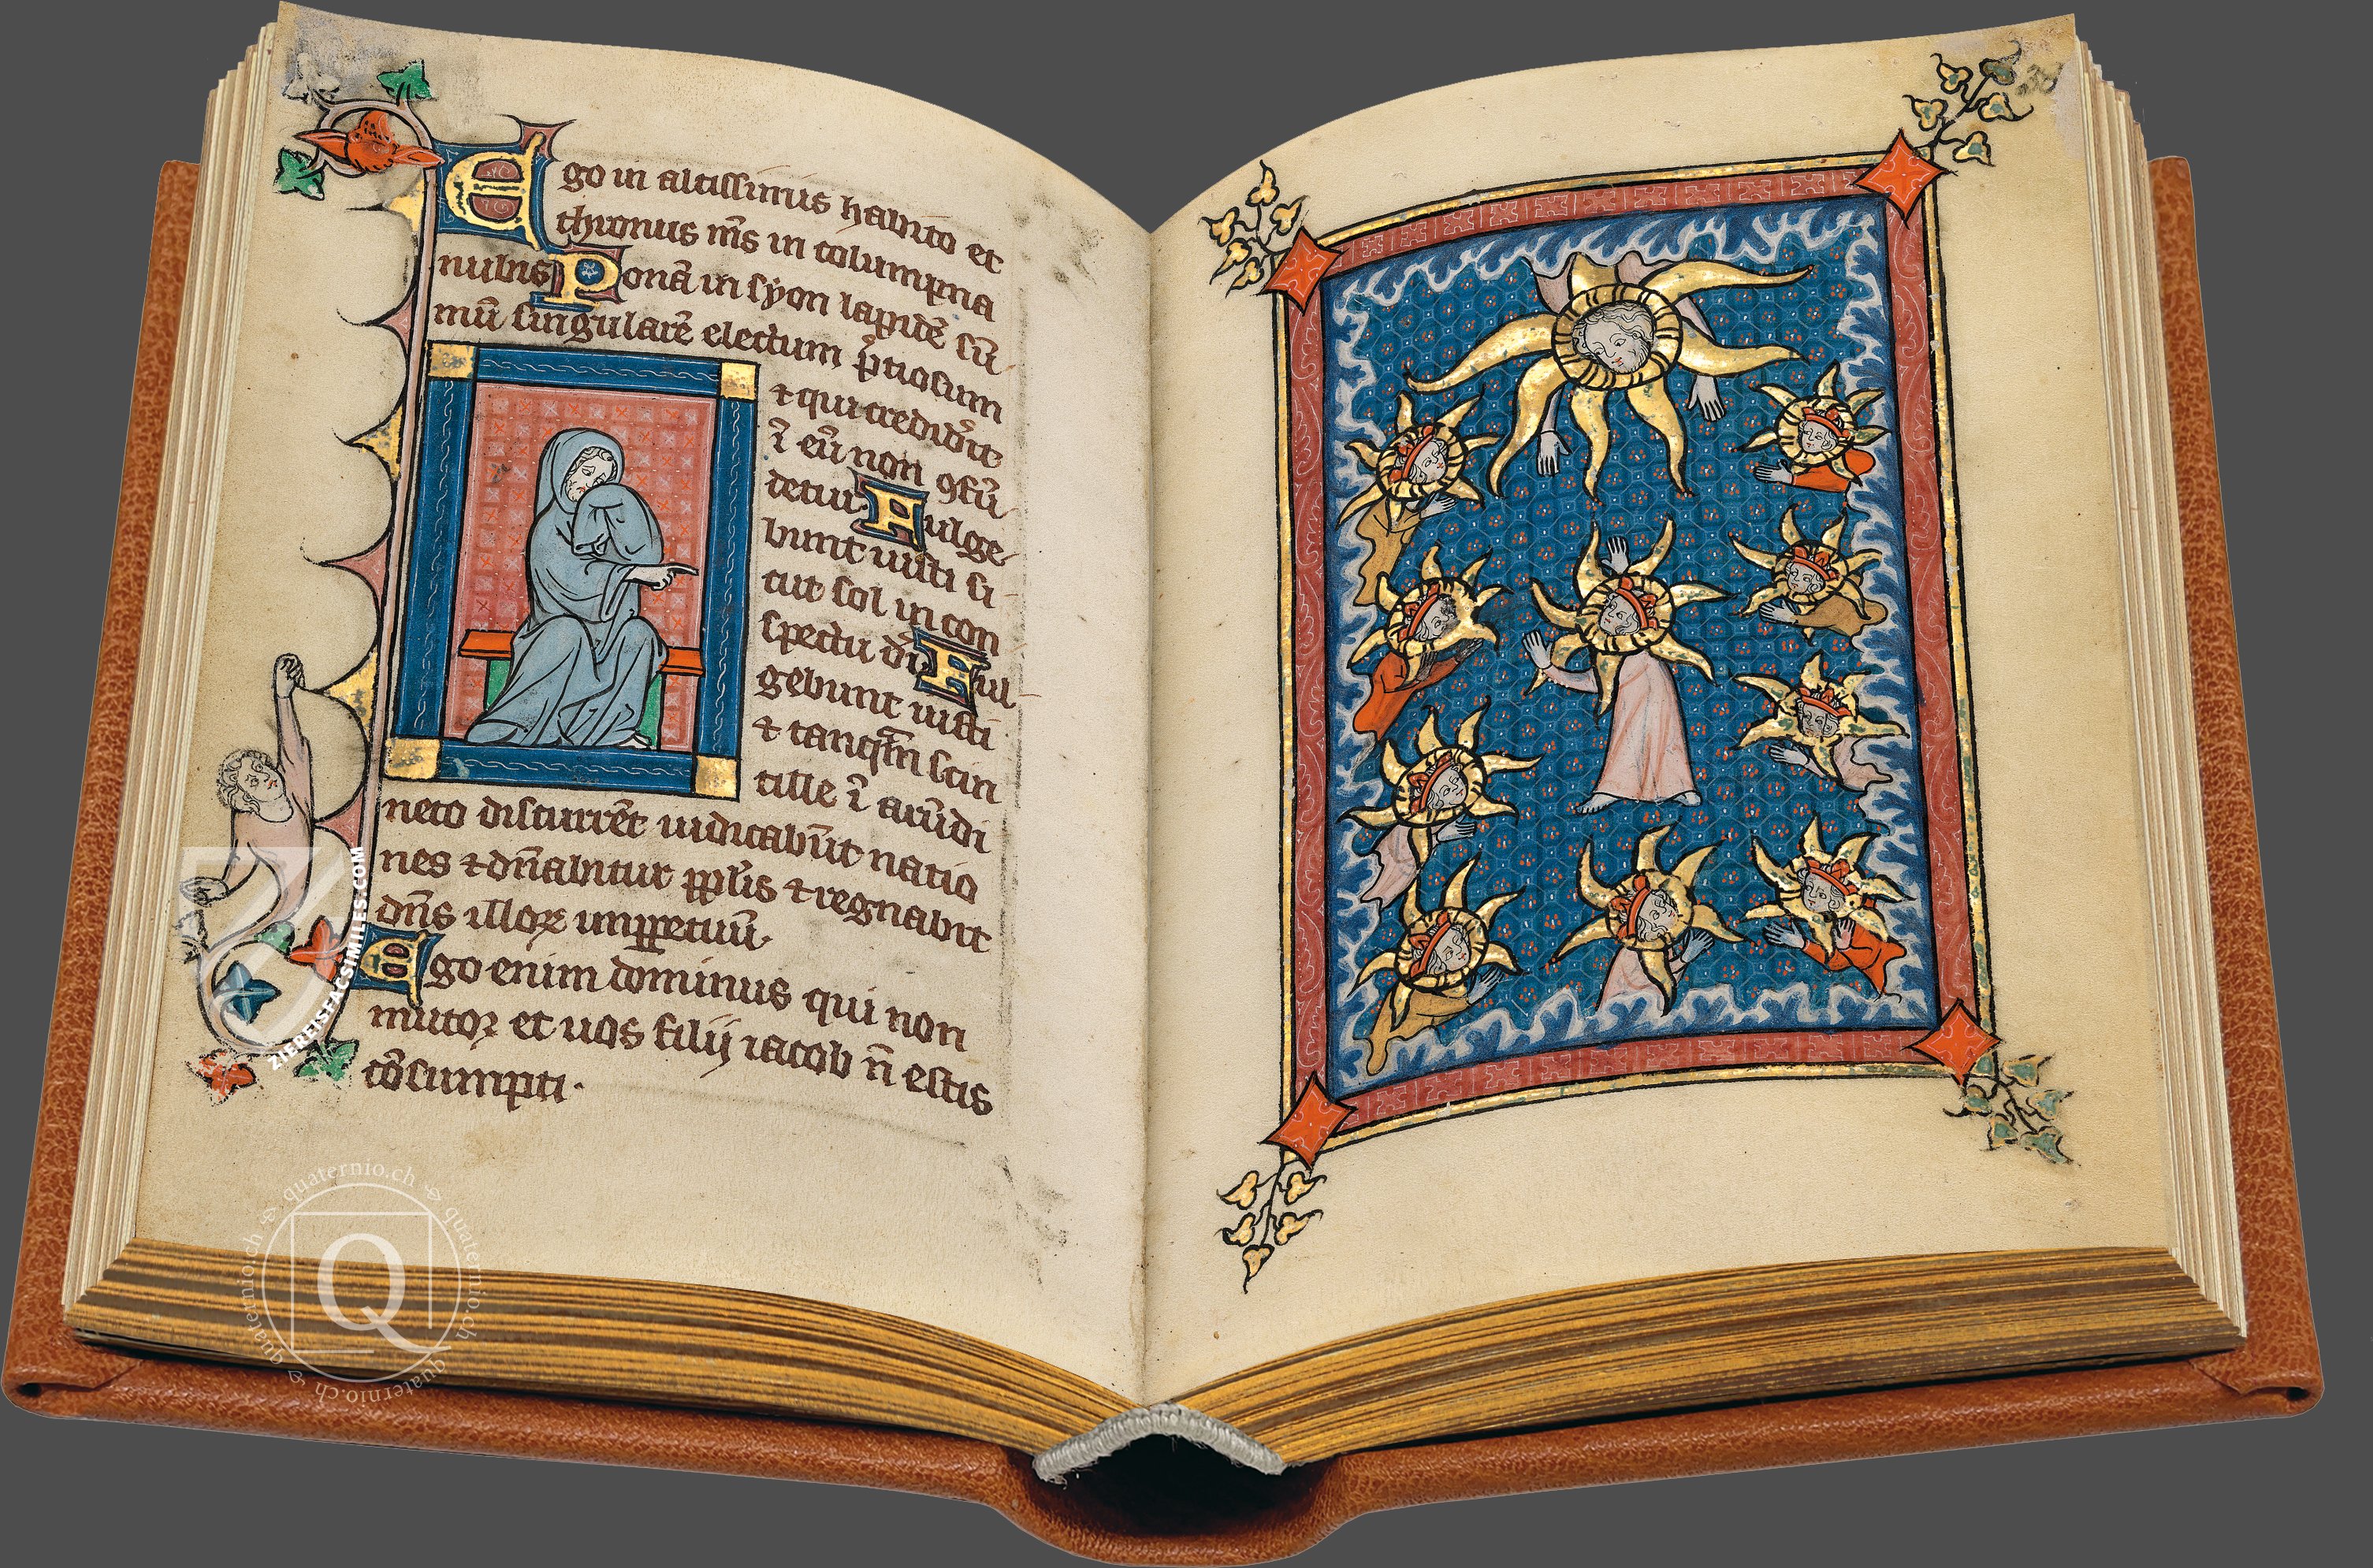 Ego in altissimis habito et
thronus m̄s in columpna
nubis Ponā in syon lapidē sū
mū singularē electum p̄tiosum
⁊ qui crediđit
ī eū non ꝯfū
detur. Fulge
bunt iusti si
cut sol in con
spectu dī. Ful
gebunt iusti
⁊ tanq̄m scin
tille ī arūdi
neto discurrēt iudicabūt natio
nes ⁊ dn̄abūtur pp̄lis ⁊ regnabit
dn̄s illoꝝ imꝑpetuū.
Ego enim dominus qui non
mutor et uos filij iacob n̄ estis
cōsumpti.
ZIEREISFACSIMILES.COM
Q
quaternio.ch quaternio.ch quaternio.ch quaternio.ch